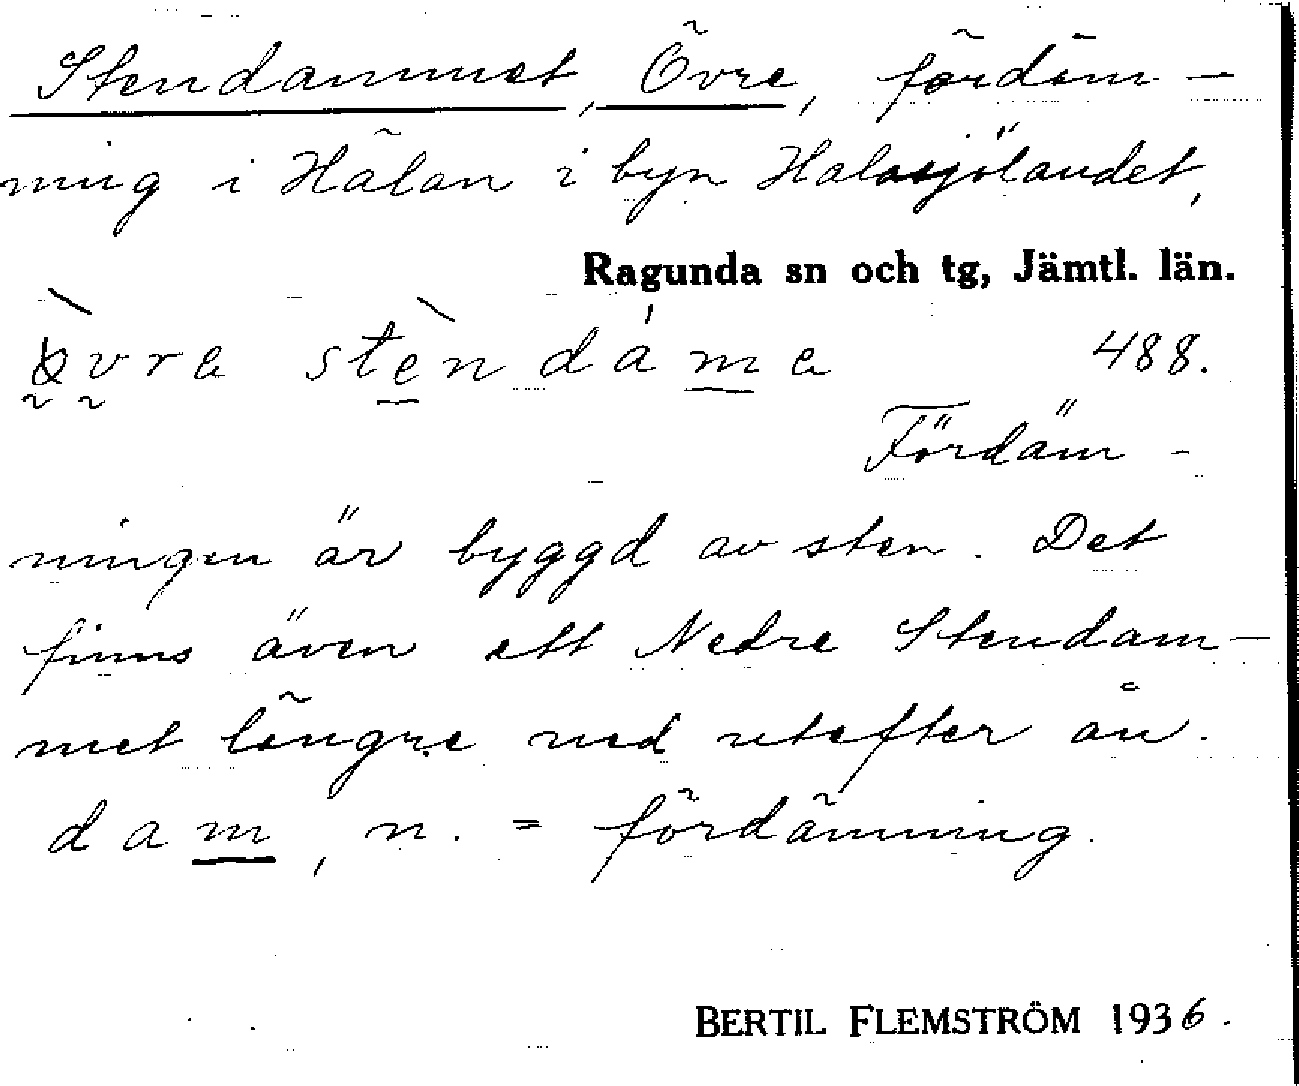 Stendammet, Övre, fördäm-
ning i Hålan i byn Halasjölandet,
Ragunda sn och tg, Jämtl. län.
övre stendame 488.
Fördäm-
ningen är byggd av sten. Det
finns även ett Nedre Stendam-
met längre ned utefter ån.
dam, n. = fördämning.
BERTIL FLEMSTRÖM 1936.